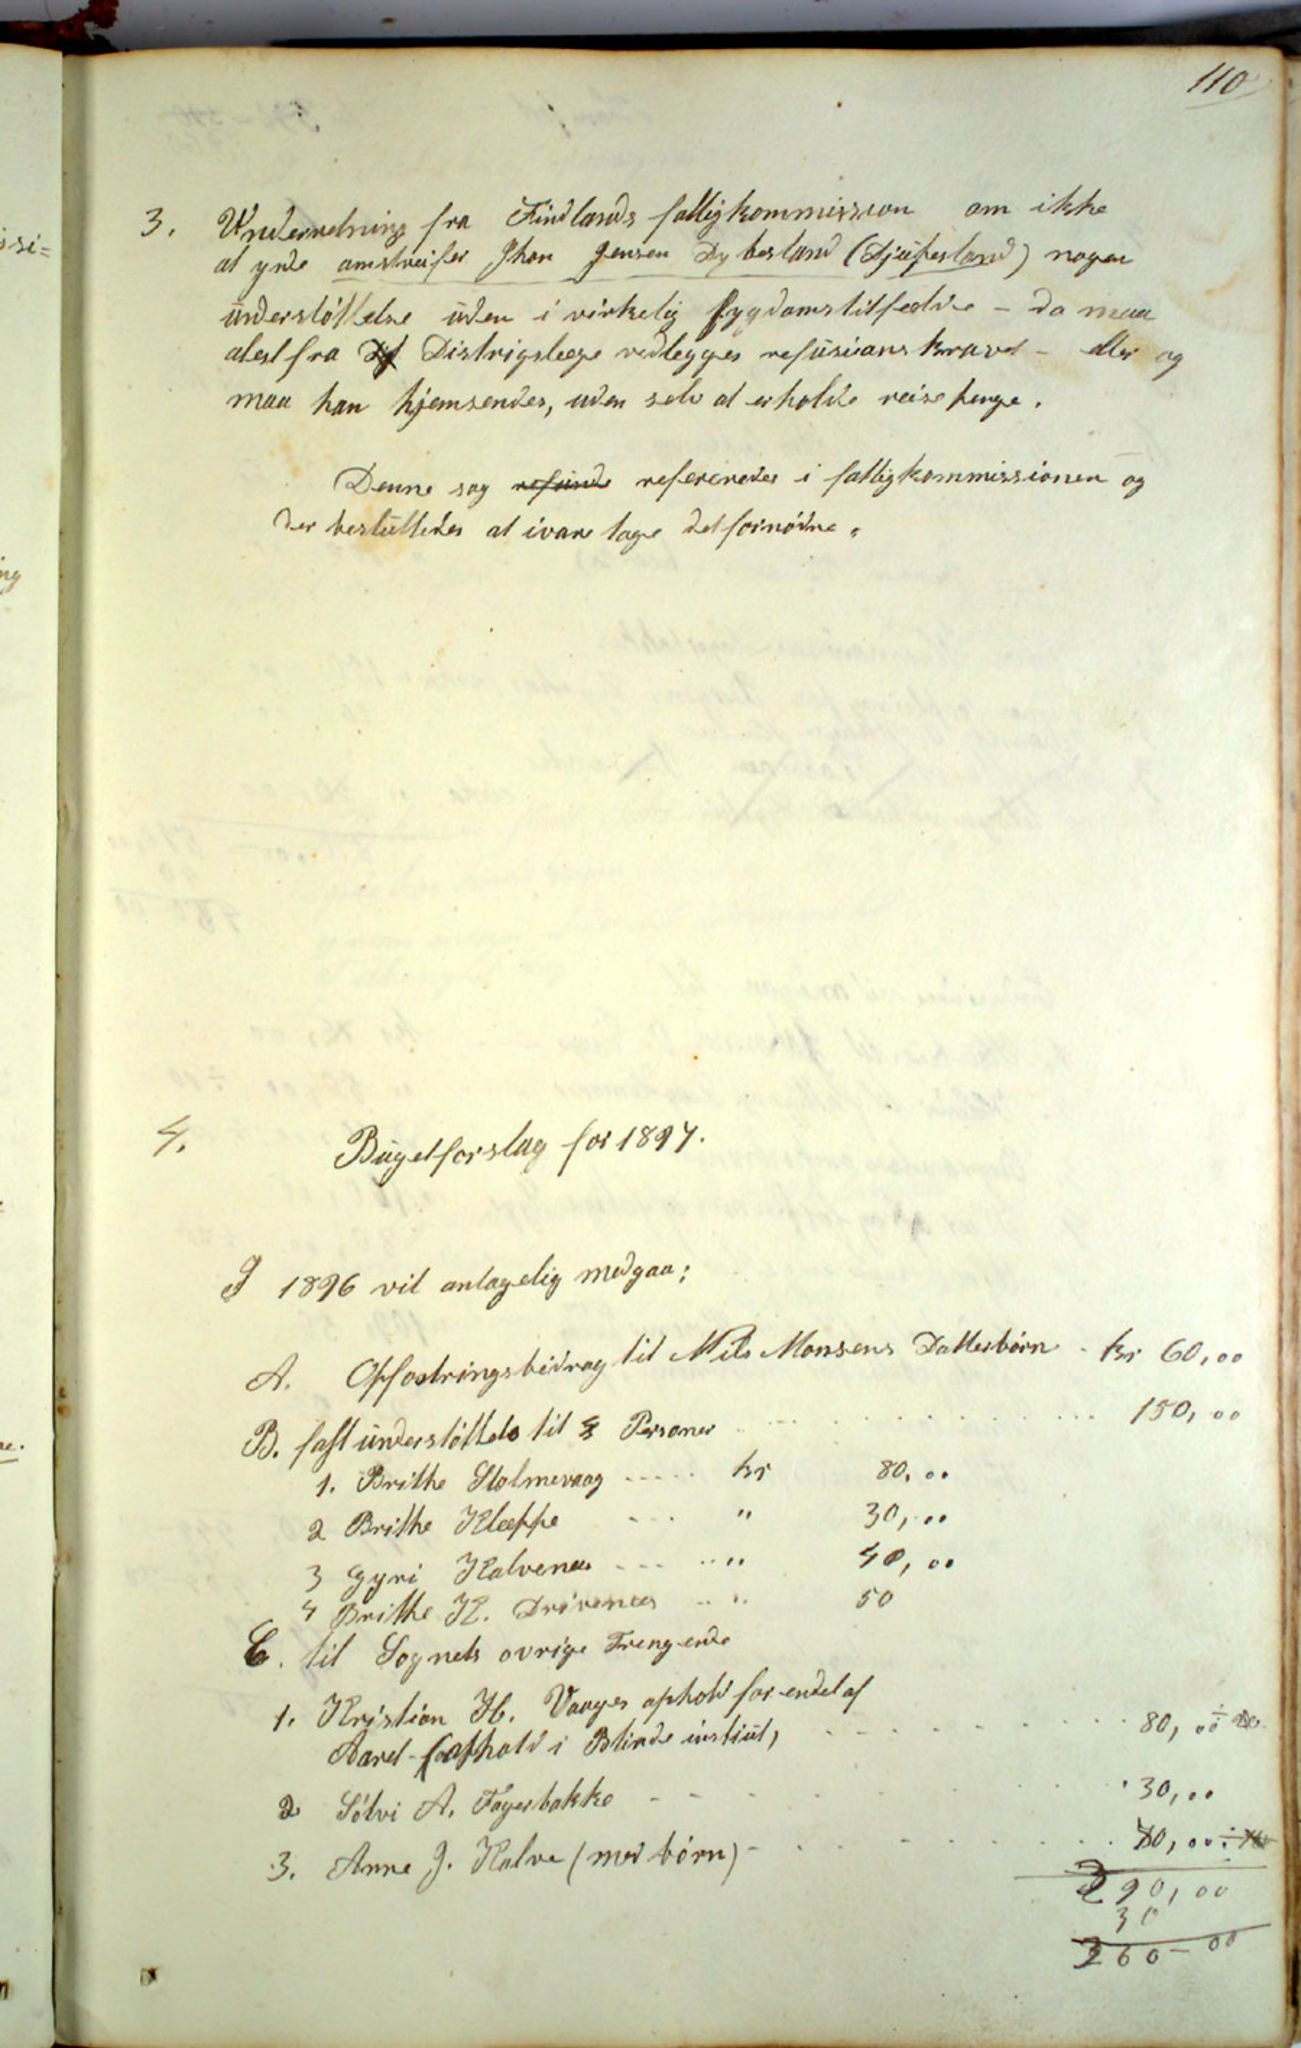 110
3. Underretning fra Findlands fattigkommission om ikke
at yde omstreifer Jhon Jensen Dybesland (Djubesland) nogen
understøttelse uden i virkelig sygdomstilfælde - da maa
atest fra Distrigslæge vedlegges refusionskravet - eller og
maa han hjemsendes, uden selv at erholde reisepenge.
Denne sag refunde refereredes i fattigkommissionen og
der besluttedes at ivaretage det fornødne.
4. Bugetforslag for 1897.
I 1896 vil antagelig medgaa:
A. Opfostringsbidrag til Nils Monsens Datterbørn - kr 60,00
B. fast understøttels til 4 Personer 150,00
1. Brithe Stolmevaag kr 80,00
2 Brithe Kleppe " 30,00
3 Gyri Kalvenes " 40,00
4 Brithe K. Drivenes " 50
C. til Sognets øvrige Trengende
1. Kristian H. Vaages ophold for endel af
Aaret - (ophold i Blinde instiut, 80,00
2 Sølvi A. Fagerbakke 30,00
3. Anne J. Kalve (med børn) - 70,00
390,00
30
360-00